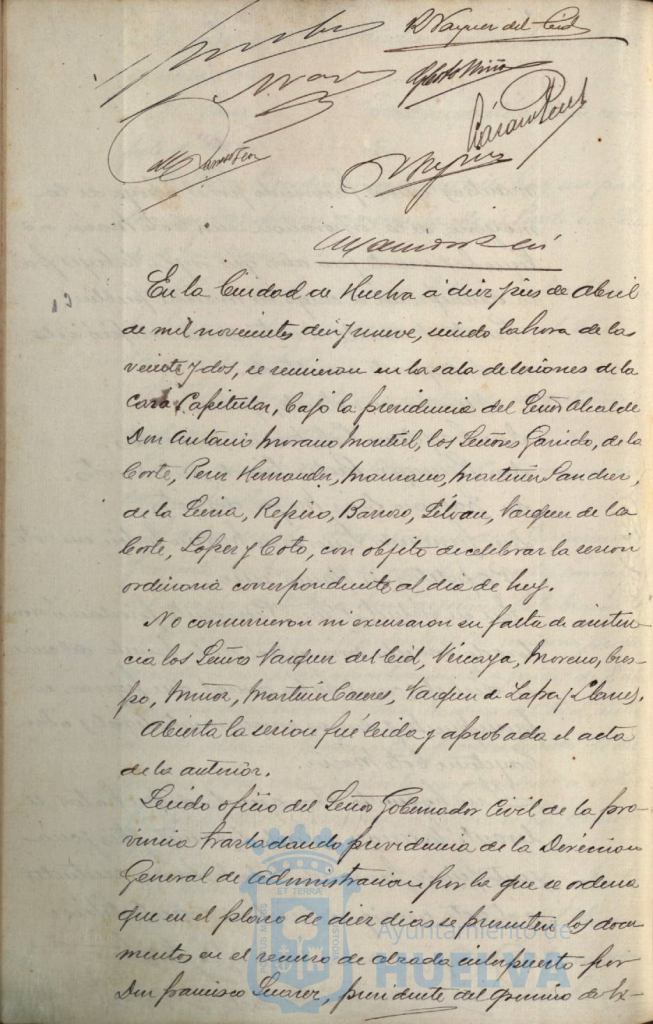 R Vazquez del Cid
En la Ciudad de Huelva á diez y seis de Abril
de mil novecientos diez y nueve, siendo la hora de las
veinte y dos, se reunieron en la sala de sesiones de la
Casa Capitular, bajo la presidencia del Señor Alcalde
Don Antonio Morano Montiel, los Señores Garrido, de la
Corte, Perez Hernandez, Mascaros, Martin Sanchez,
de la Sierra, Repiso, Barroso, Silvan, Vazquez de la
Corte, Lopez y Coto, con objeto de celebrar la sesion
ordinaria correspondiente al dia de hoy.
No concurrieron ni excusaron su falta de asisten-
cia los Señores Vazquez del Cid, Vizcaya, Moreno, Cres-
po, Muñoz, Martin Caceres, Vazquez de Zafra y Llanes.
Abierta la sesion fué leida y aprobada el acta
de la anterior.
Leido oficio del Señor Gobernador Civil de la pro-
vincia trasladando providencia de la Direccion
General de Administracion, por la que se ordena
que en el plazo de diez dias se presenten los docu
mentos en el recurso de alzada interpuesto por
Don Francisco Suarez, presidente del gremio de Ex-
Ayuntamiento de
HUELVA